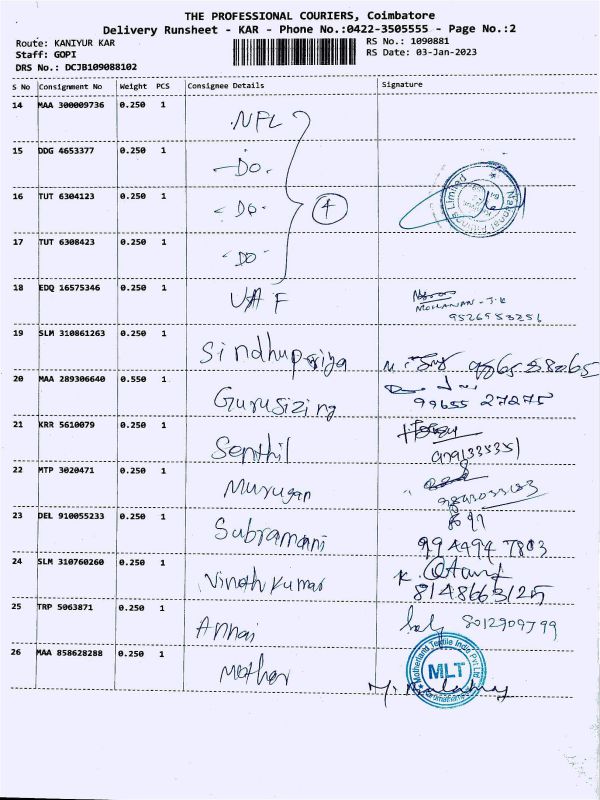 THE PROFESSIONAL COURIERS, Coimbatore
Delivery Runsheet - KAR - Phone No.:0422-3505555 - Page No.:2
Route: KANIYUR KAR
RS No.: 1090881
Staff: GOPI
RS Date: 03-Jan-2023
DRS No.: DCJB109088102
S No Consignment No Weight PCS Consignee Details Signature
14 MAA 300009736 0.250 1 NFL
15 DDG 4653377 0.250 1 -DO-
16 TUT 6304123 0.250 1 -DO- 4
National Limited
17 TUT 6308423 0.250 1 -DO-
18 EDQ 16575346 0.250 1 UAF
MOHANAN-J.K
9526953251
19 SLM 310861263 0.250 1 Sindhupriya
20 MAA 289306640 0.550 1 Gurusizing
99655 27275
21 KRR 5610079 0.250 1 Senthil
22 MTP 3020471 0.250 1 Murugan
23 DEL 910055233 0.250 1 Subramani
994494 7803
24 SLM 310760260 0.250 1 Vinoth Kumar
8148663125
25 TRP 5063871 0.250 1 Annai 8012909799
26 MAA 858628288 0.250 1 Mother
Motherland Textile India Pvt Ltd
MLT